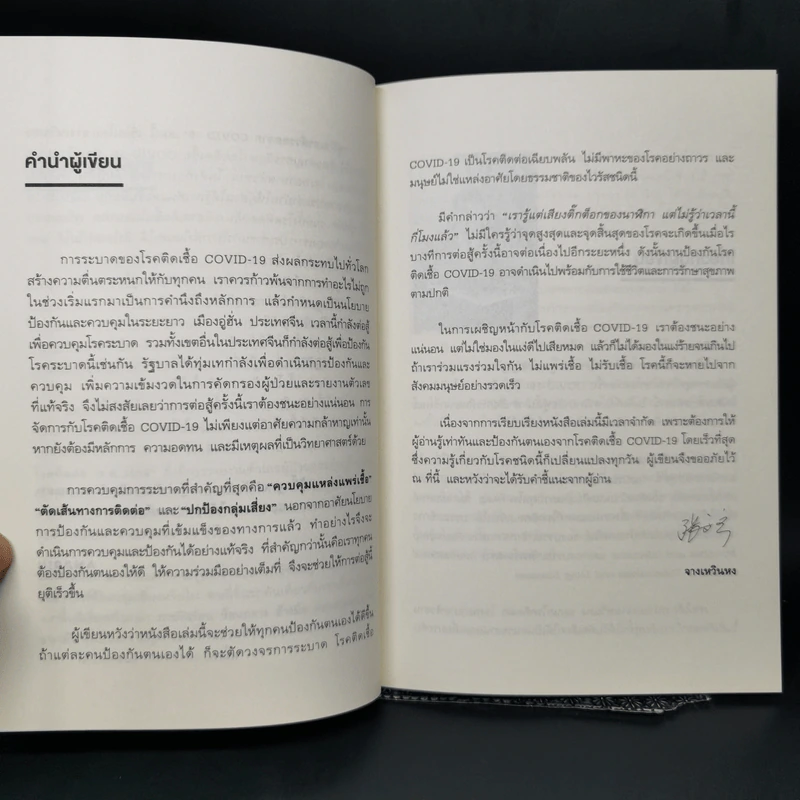 คำนำผู้เขียน
การระบาดของโรคติดเชื้อ COVID-19 ส่งผลกระทบไปทั่วโลก
สร้างความตื่นตระหนกให้กับทุกคน เราควรก้าวพ้นจากการทำอะไรไม่ถูก
ในช่วงเริ่มแรกมาเป็นการคำนึงถึงหลักการ แล้วกำหนดเป็นนโยบาย
ป้องกันและควบคุมในระยะยาว เมืองอู่ฮั่น ประเทศจีน เวลานี้กำลังต่อสู้
เพื่อควบคุมโรคระบาด รวมทั้งเขตอื่นในประเทศจีนก็กำลังต่อสู้เพื่อป้องกัน
โรคระบาดนี้เช่นกัน รัฐบาลได้ทุ่มเทกำลังเพื่อดำเนินการป้องกันและ
ควบคุม เพิ่มความเข้มงวดในการคัดกรองผู้ป่วยและรายงานตัวเลข
ที่แท้จริง จึงไม่สงสัยเลยว่าการต่อสู้ครั้งนี้เราต้องชนะอย่างแน่นอน การ
จัดการกับโรคติดเชื้อ COVID-19 ไม่เพียงแต่อาศัยความกล้าหาญเท่านั้น
หากยังต้องมีหลักการ ความอดทน และมีเหตุผลที่เป็นวิทยาศาสตร์ด้วย
การควบคุมการระบาดที่สำคัญที่สุดคือ "ควบคุมแหล่งแพร่เชื้อ"
"ตัดเส้นทางการติดต่อ" และ "ปกป้องกลุ่มเสี่ยง" นอกจากอาศัยนโยบาย
การป้องกันและควบคุมที่เข้มแข็งของทางการแล้ว ทำอย่างไรจึงจะ
ดำเนินการควบคุมและป้องกันได้อย่างแท้จริง ที่สำคัญกว่านั้นคือเราทุกคน
ต้องป้องกันตนเองให้ดี ให้ความร่วมมืออย่างเต็มที่ จึงจะช่วยให้การต่อสู้นี้
ยุติเร็วขึ้น
ผู้เขียนหวังว่าหนังสือเล่มนี้จะช่วยให้ทุกคนป้องกันตนเองได้ดีขึ้น
ถ้าแต่ละคนป้องกันตนเองได้ ก็จะตัดวงจรการระบาด โรคติดเชื้อ
COVID-19 เป็นโรคติดต่อเฉียบพลัน ไม่มีพาหะของโรคอย่างถาวร และ
มนุษย์ไม่ใช่แหล่งอาศัยโดยธรรมชาติของไวรัสชนิดนี้
มีคำกล่าวว่า "เรารู้แต่เสียงติ๊กต็อกของนาฬิกา แต่ไม่รู้ว่าเวลานี้
กี่โมงแล้ว" ไม่มีใครรู้ว่าจุดสูงสุดและจุดสิ้นสุดของโรคจะเกิดขึ้นเมื่อไร
บางทีการต่อสู้ครั้งนี้อาจต่อเนื่องไปอีกระยะหนึ่ง ดังนั้นงานป้องกันโรค
ติดเชื้อ COVID-19 อาจดำเนินไปพร้อมกับการใช้ชีวิตและการรักษาสุขภาพ
ตามปกติ
ในการเผชิญหน้ากับโรคติดเชื้อ COVID-19 เราต้องชนะอย่าง
แน่นอน แต่ไม่ใช่มองในแง่ดีไปเสียหมด แล้วก็ไม่ได้มองในแง่ร้ายจนเกินไป
ถ้าเราร่วมแรงร่วมใจกัน ไม่แพร่เชื้อ ไม่รับเชื้อ โรคนี้ก็จะหายไปจาก
สังคมมนุษย์อย่างรวดเร็ว
เนื่องจากการเรียบเรียงหนังสือเล่มนี้มีเวลาจำกัด เพราะต้องการให้
ผู้อ่านรู้เท่าทันและป้องกันตนเองจากโรคติดเชื้อ COVID-19 โดยเร็วที่สุด
ซึ่งความรู้เกี่ยวกับโรคชนิดนี้ก็เปลี่ยนแปลงทุกวัน ผู้เขียนจึงขออภัยไว้
ณ ที่นี้ และหวังว่าจะได้รับคำชี้แนะจากผู้อ่าน
จางเหวินหง